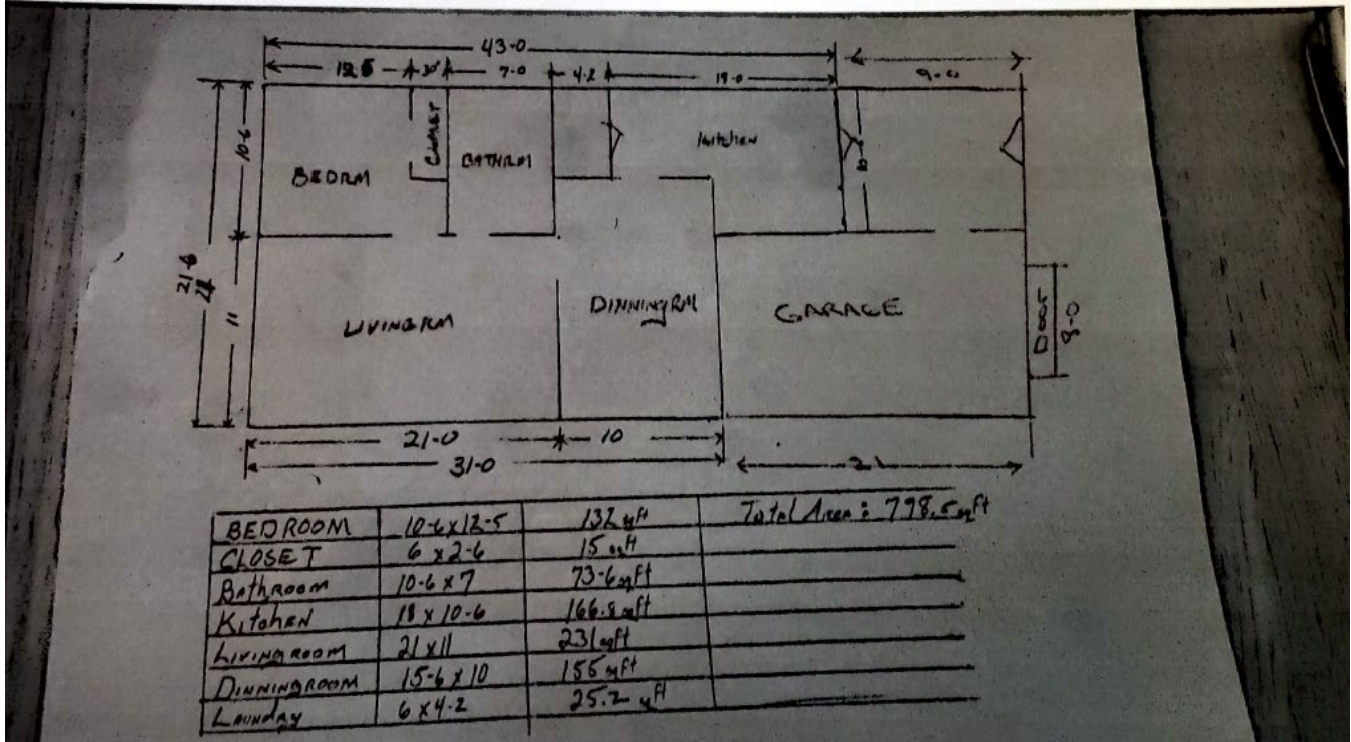 43-0
7-0 4-2 18-0 9-0
10-6
BEDRM
CLOSET
BATHRM
Kitchen
21-6
11
LIVINGRM
DINNINGRM
GARAGE
DOOR
8-0
21-0 10
31-0
BEDROOM 10-6x12-5 132 sqft Total Area: 798.5 sqft
CLOSET 6 x2-6 15 sqft
Bathroom 10-6x7 73-6 sqft
Kitchen 18 x 10-6 166.8 sqft
Livingroom 21 x11 231 sqft
DINNINGROOM 15-6x10 155 sqft
Laundry 6 x4-2 25.2 sqft